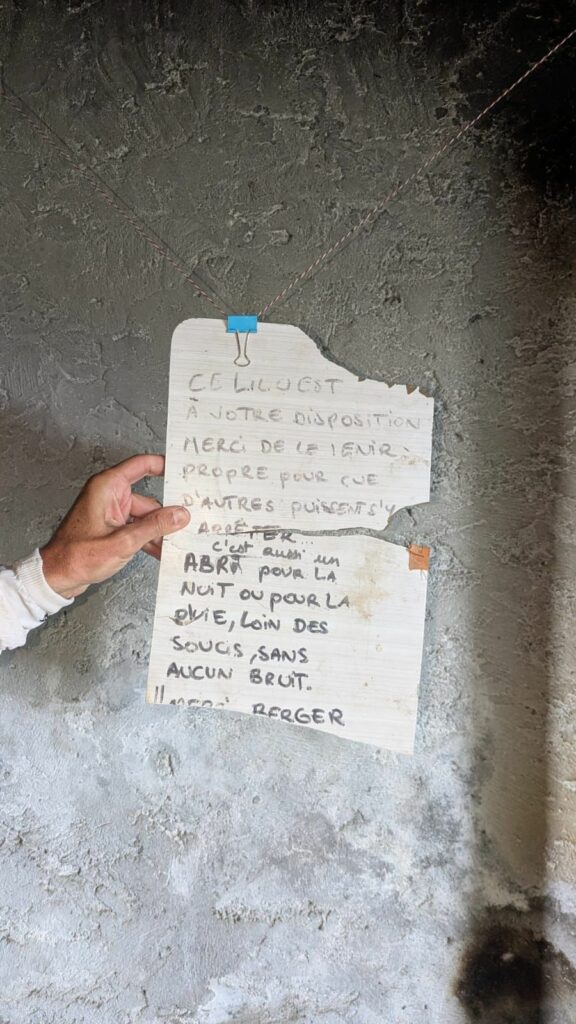 CE LIEU EST
À VOTRE DISPOSITION
MERCI DE LE TENIR
PROPRE POUR QUE
D'AUTRES PUISSENT S'Y
ARRÊTER...
c'est aussi un
ABRI POUR LA
NUIT OU POUR LA
PLUIE, LOIN DES
SOUCIS, SANS
AUCUN BRUIT.
!! MERCI BERGER